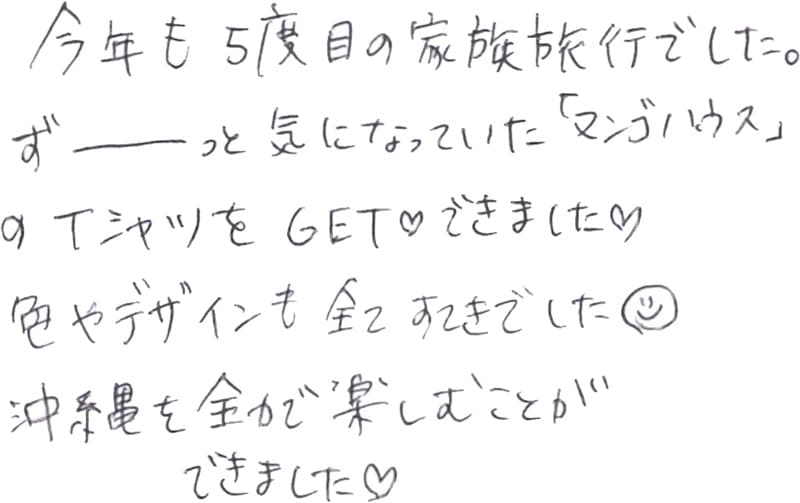 今年も5度目の家族旅行でした。
ず――っと気になっていた「マンゴハウス」
のTシャツをGET♡できました♡
色やデザインも全てすてきでした☺
沖縄を全力で楽しむことが
できました♡